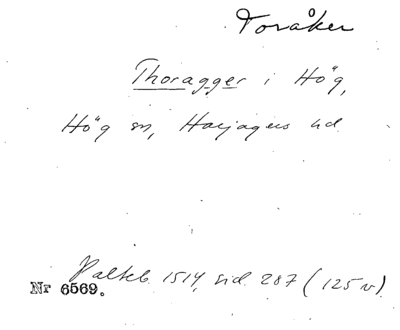 Toråker
Thoragger i Hög,
Hög sn, Harjagers hd
Palteb. 1514, sid. 287 (125 v).
Nr 6569.